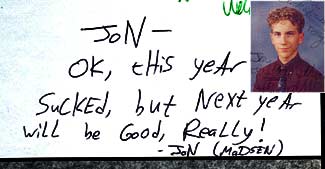 JoN —
OK, tHis yeAr
Sucked, but Next yeAr
will be Good, ReaLLy!
- JoN (MaDSEN)